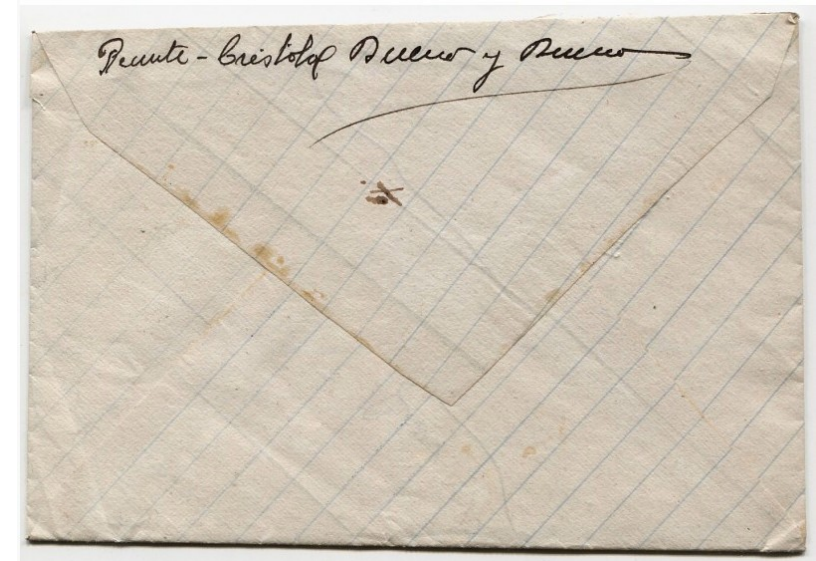 Remite - Cristobal Bueno y Bueno